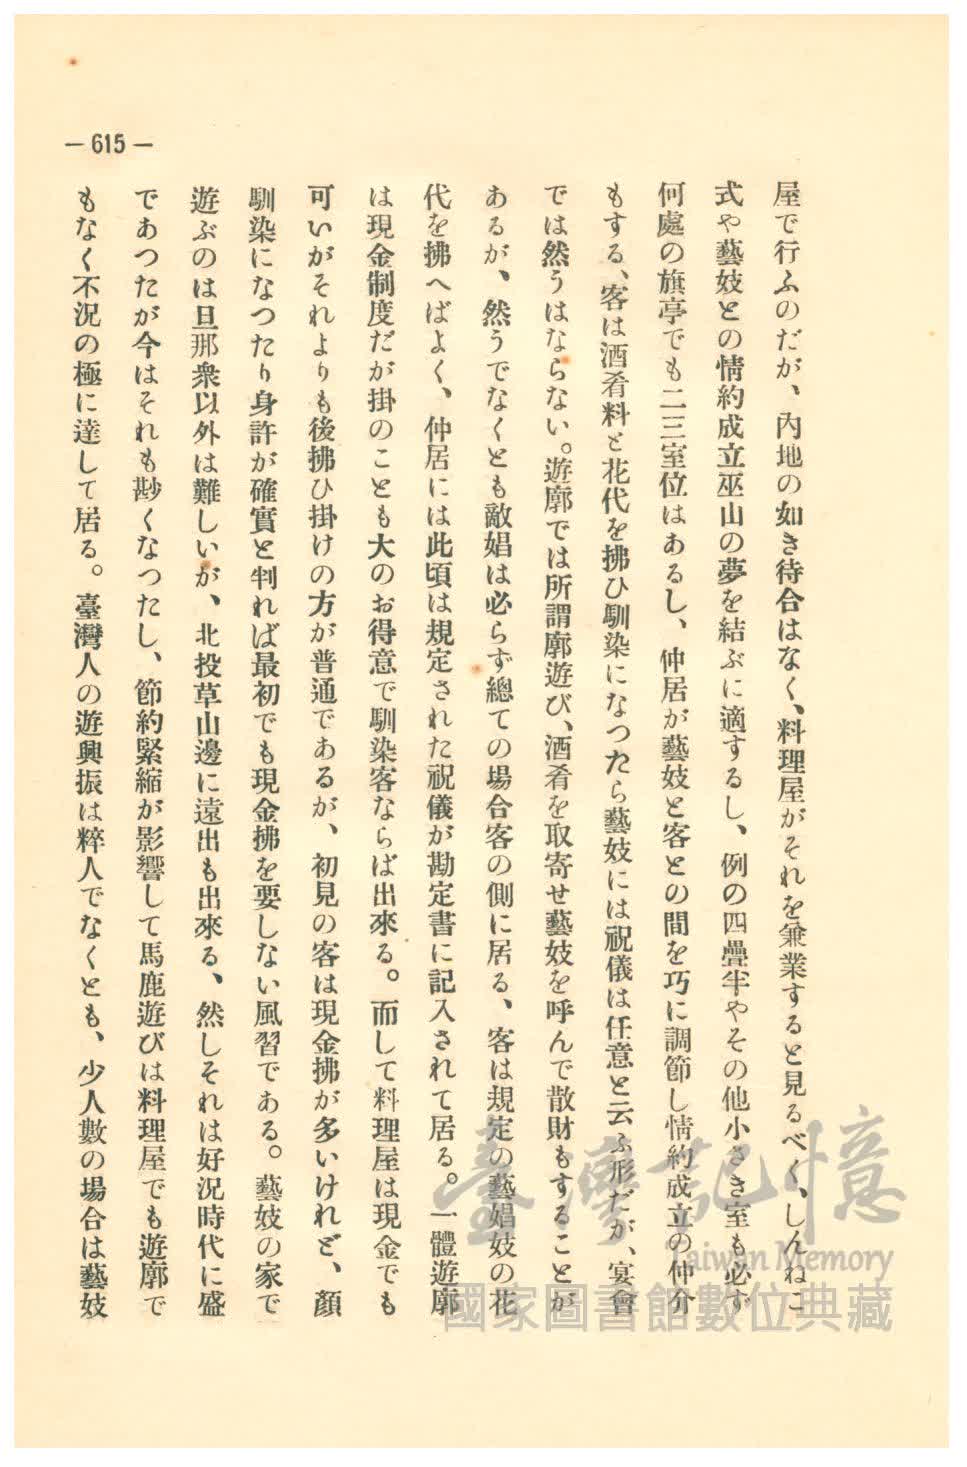 —615—
屋で行ふのだが、內地の如き待合はなく、料理屋がそれを兼業すると見るべく、しんねこ
式や藝妓との情約成立巫山の夢を結ぶに適するし、例の四疊半やその他小さき室も必ず
何處の旗亭でも二三室位はあるし、仲居が藝妓と客との間を巧に調節し情約成立の仲介
もする、客は酒肴料と花代を拂ひ馴染になつたら藝妓には祝儀は任意と云ふ形だが、宴會
では然うはならない。遊廓では所謂廓遊び、酒肴を取寄せ藝妓を呼んで散財もすることが
あるが、然うでなくとも敵娼は必らず總ての場合客の側に居る、客は規定の藝娼妓の花
代を拂へばよく、仲居には此頃は規定された祝儀が勘定書に記入されて居る。一體遊廓
は現金制度だが掛のことも大のお得意で馴染客ならば出來る。而して料理屋は現金でも
可いがそれよりも後拂ひ掛けの方が普通であるが、初見の客は現金拂が多いけれど、顏
馴染になつたり身許が確實と判れば最初でも現金拂を要しない風習である。藝妓の家で
遊ぶのは旦那衆以外は難しいが、北投草山邊に遠出も出來る、然しそれは好況時代に盛
であつたが今はそれも尠くなつたし、節約緊縮が影響して馬鹿遊びは料理屋でも遊廓で
もなく不況の極に達して居る。臺灣人の遊興振は粹人でなくとも、少人數の場合は藝妓
臺灣記憶
Taiwan Memory
國家圖書館數位典藏